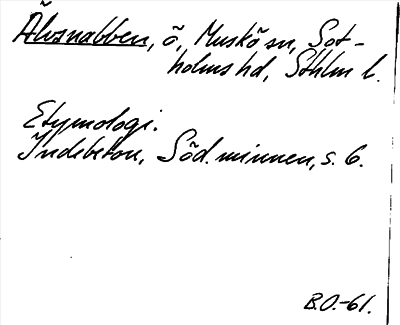 Älvsnabben, ö, Muskö sn, Sot-
holms hd, Sthlm l.
Etymologi.
Indebetou, Söd. minnen, s. 6.
B.O.-61.